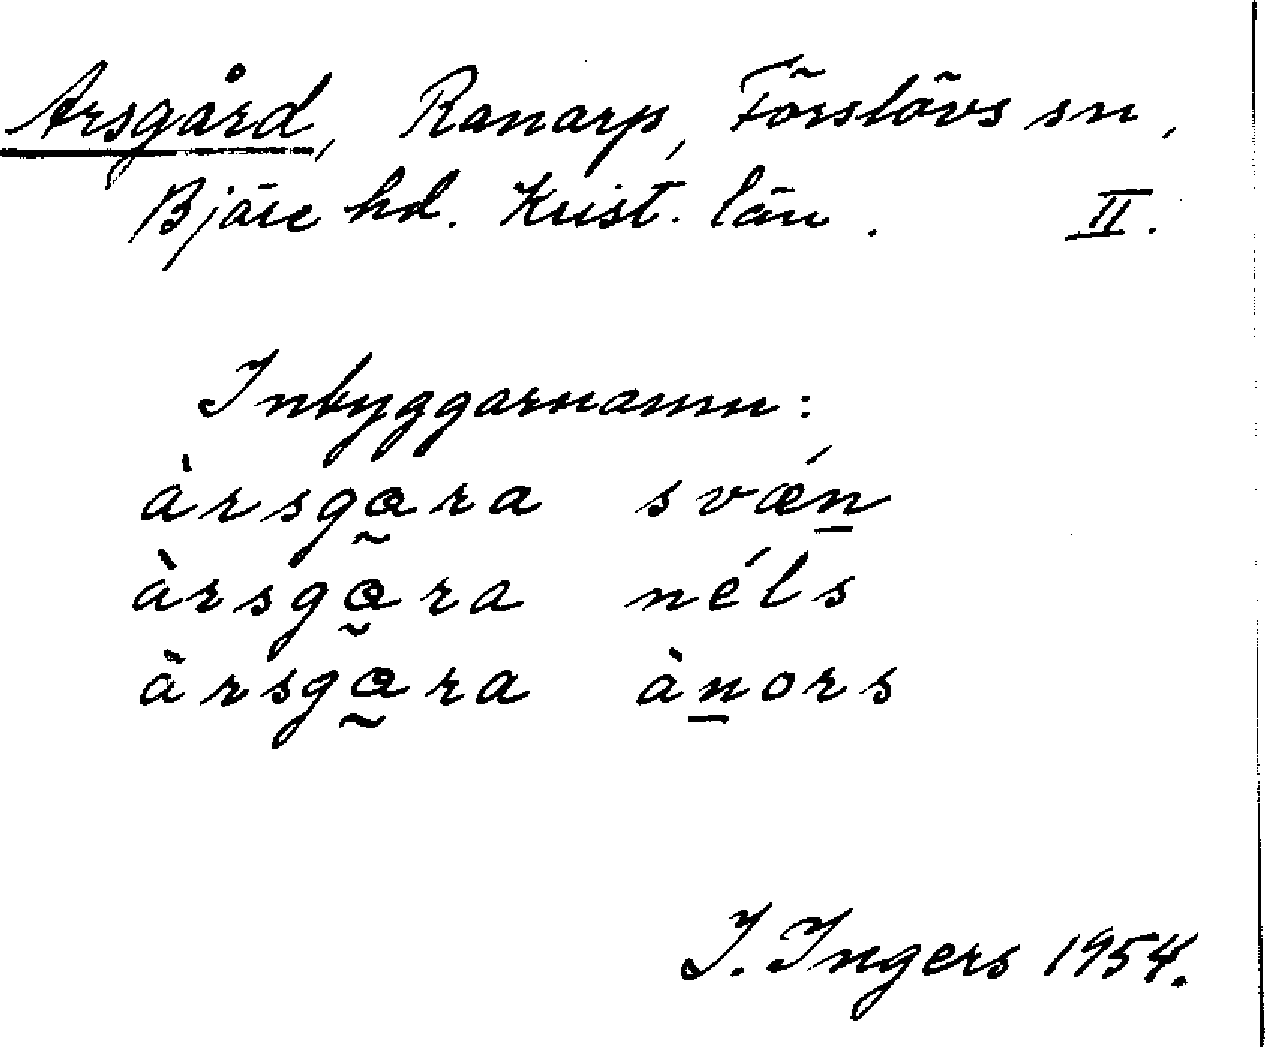 Arsgård, Ranarp, Förslövs sn,
Bjäre hd. Krist. län. II.
Inbyggarnamn:
àrsga̰ra svǽn̲
àrsga̰ra néls
àrsga̰ra àn̲ors
I. Ingers 1954.